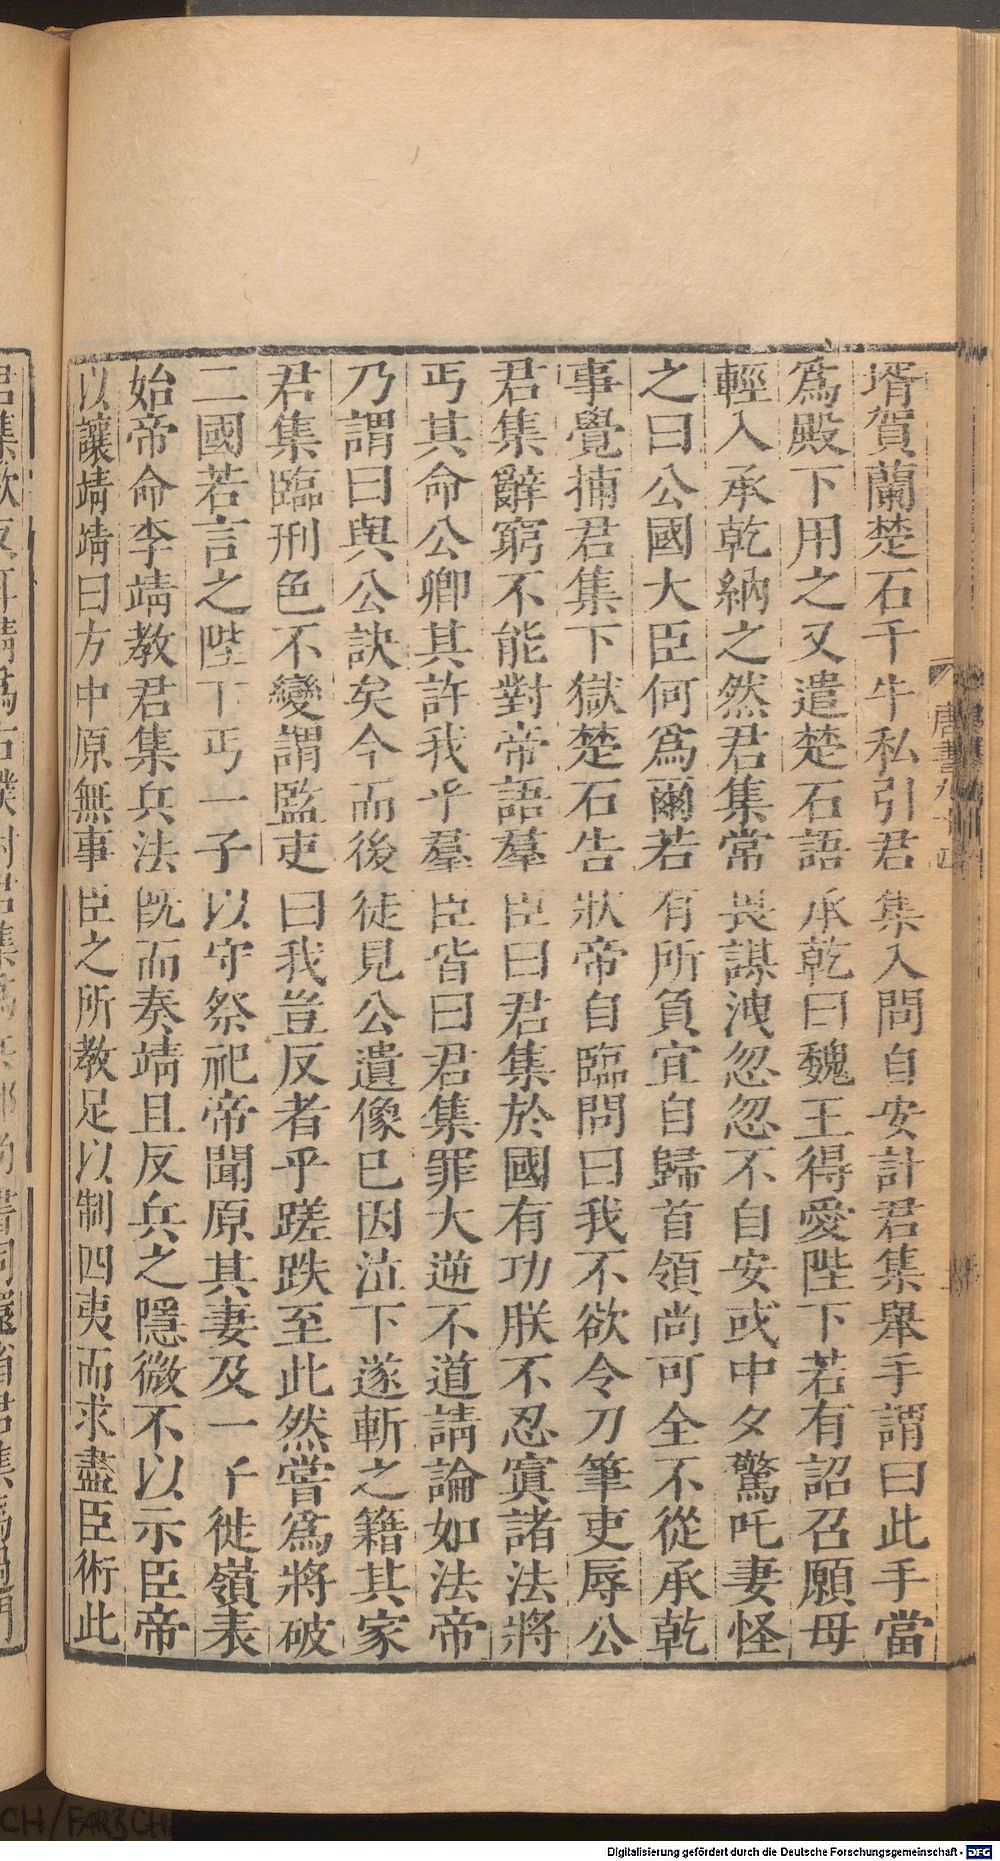 壻賀蘭楚石千牛私引君集入問自安計君集舉手謂曰此手當
爲殿下用之又遣楚石語承乾曰魏王得愛陛下若有詔召願毋
輕入承乾納之然君集常畏謀洩忽忽不自安或中夕驚吒妻怪
之曰公國大臣何爲爾若有所負宜自歸首領尚可全不從承乾
事覺捕君集下獄楚石告狀帝自臨問曰我不欲令刀筆吏辱公
君集辭窮不能對帝語羣臣曰君集於國有功朕不忍寘諸法將
丐其命公卿其許我乎羣臣皆曰君集罪大逆不道請論如法帝
乃謂曰與公訣矣今而後徒見公遺像已因泣下遂斬之籍其家
君集臨刑色不變謂監吏曰我豈反者乎蹉跌至此然嘗爲將破
二國若言之陛下丐一子以守祭祀帝聞原其妻及一子徙嶺表
始帝命李靖教君集兵法既而奏靖且反兵之隱微不以示臣帝
以讓靖靖曰方中原無事臣之所教足以制四夷而求盡臣術此
唐書九十四
Digitalisierung gefördert durch die Deutsche Forschungsgemeinschaft - DFG